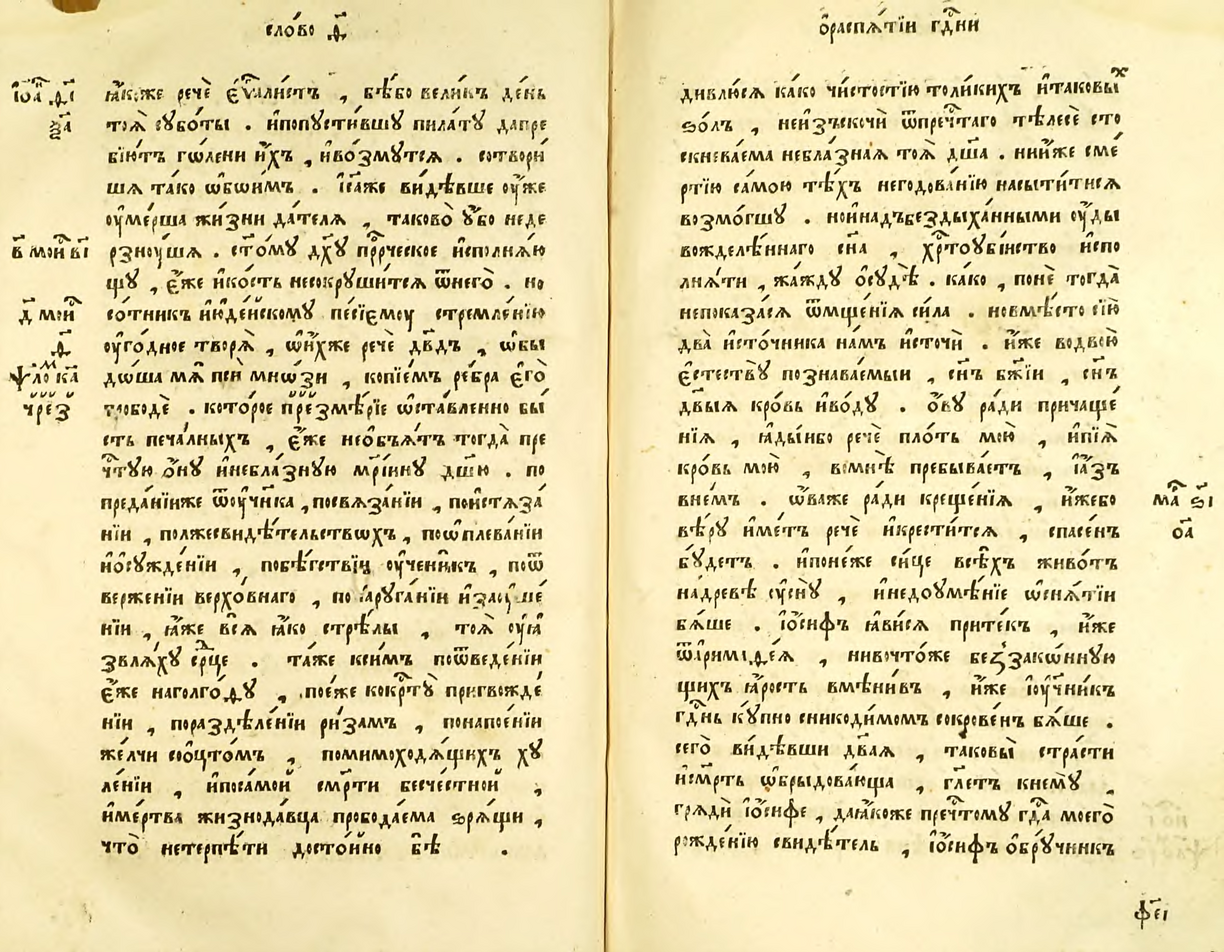 сло́во д҃
ꙗ҆́коже речѐ є҆ѵⷢ҇али́стъ , бѣ́бо вели́къ де́нь
тоѧ̀ сꙋбо́ты . и҆попꙋсти́вшꙋ пила́тꙋ дапре
бїю́тъ гѡ́лени и҆́хъ , и҆во́змꙋтсѧ . сотвори́
шѧ та́ко ѡ҆бѡи́мъ . і҆с҃аже ви́дѣвше оу҆́же
оу҆ме́рша жи́зни да́телѧ , таково̀ ᲂу҆́бо неде
рзноу́шѧ . ст҃о́мꙋ дх҃ꙋ прⷪ҇ро́ческое и҆сполнѧ́ю
щꙋ , є҆́же и҆ко́сть несокрꙋши́тсѧ ѿнегѡ̀ . но
со́тникъ и҆ю҆де́йскомꙋ пе́сїємоу стремле́нїю
оу҆го́дное творѧ̀ , ѡ҆ни́хже речѐ дв҃дъ , ѡ҆бы
до́ша мѧ̀ пси̑ мно́зи , копїе́мъ ре́бра є҆гѡ̀
прободѐ . кото́рое пре́змѣ́рїе ѡ҆ста́вленно бы́
сть печа́лныхъ , є҆́же неѻбъѧ́тъ тогда̀ пре
чⷭ҇тꙋю ѻ҆́нꙋ и҆небла́знꙋю мр҃іинꙋ дш҃ю . по
преда́нїиже ѿоу҆ч҃ника , посвѧза́нїи , пои҆стѧза́
нїи , полжесвидѣ́тельствѡхъ , поѡ҆плева́нїи
и҆ѻ҆сꙋжде́нїи , побѣ́гствїи оу҆чени́къ , поѿ
верже́нїи верхо́внаго , по нарꙋга́нїи и҆заꙋше́
нїи , ꙗ҆́же всѧ̑ ꙗ҆́ко стрѣ́лы , тоѧ̀ оу҆ꙗ҆
звлѧ́хꙋ ср҃це . та́же кси́мъ поѿведе́нїи
є҆́же наголго́ѳꙋ , пое́же кокрⷭ҇тꙋ̀ пригвожде́
нїи , пораздѣле́нїи ри́замъ , понапое́нїи
же́лчи соѻ҆́цтомъ , помимоходѧ́щихъ хꙋ
ле́нїи , и҆поса́мой сме́рти безче́стной ,
и҆ме́ртва жизнода́вца пробода́ема ѕрѧ́щи ,
что̀ нетерпѣ́ти досто́йно бѣ̀ .
і҆ѡⷩ҇ а҃і
ѯ҃а
в҃ мой҃ в҃і
д҃ мой
д҃
ѱало́м ка҃
ѻ҆распѧ́тїи гⷭ҇дни
дивлю́сѧ ка́ко чи́стостїю толи́кихъ и҆таковы́х
ѕо́лъ , неи҆зъскочѝ ѿпречⷭ҇таго тѣлесѐ сто
скнева́ема небла́знаѧ тоѧ̀ дш҃а . нии҆́же сме́
ртїю само́ю тѣ́хъ негодова́нїю насы́титисѧ
возмо́гшꙋ . нои҆надъбездыха́нными оу҆́ды
вожделѣ́ннаго сн҃а , хрⷭ҇тоубі́йство и҆спо
лнѧ́ти , жа́ждꙋ ѻ҆сꙋдѣ̀ . ка́ко , понѐ тогда̀
непоказа́сѧ ѿмще́нїѧ си́ла . новмѣ́сто сїю̀
два̀ и҆сто́чника на́мъ и҆сточѝ . и҆́же водвою̀
є҆стествꙋ̀ познава́емыи , сн҃ъ бж҃їи , сн҃ъ
дв҃ыѧ кро́вь и҆во́дꙋ . ѻ҆́вꙋ ра́ди причаще́
нїѧ , ꙗ҆ды́ибо речѐ пло́ть мою̀ , и҆пїѧ̀
кро́вь мою̀ , вомнѣ̀ пребыва́етъ , і҆а҆́зъ
вне́мъ . ѡ҆́важе ра́ди креще́нїѧ , и҆́жебо
вѣ́рꙋ и҆́метъ речѐ и҆крести́тсѧ , спасе́нъ
бꙋ́детъ . и҆поне́же си́це всѣ́хъ живо́тъ
надре́вѣ ᲂу҆снꙋ̀ , и҆недоумѣ́нїе ѡ҆снѧ́тїи
бѧ́ше . і҆ѡ́сифъ ꙗ҆ви́сѧ прите́къ , и҆́же
ѿаримаѳе́ѧ , нивочто́же беззако́ннꙋю
щихъ ꙗ҆́рость вмѣни́въ , и҆́же і҆оу҆ч҃ни́къ
гⷭ҇днь кꙋ́пно сникоди́момъ сокрове́нъ бѧ́ше .
сего̀ ви́дѣвши дв҃аѧ , таковы̀ стра́сти
и҆сме́рть ѡ҆брыдова́юща , гл҃етъ кнемꙋ̀ ,
грѧдѝ і҆ѡ́сифе , даꙗ҆́коже пречⷭ҇томꙋ гдⷭ҇а моего̀
рожде́нїю свидѣ́тель , і҆ѡ́сифъ ѻ҆брꙋ́чникъ
маⷬ҇ ѕ҃і
ѻ҃а
ф҃еі